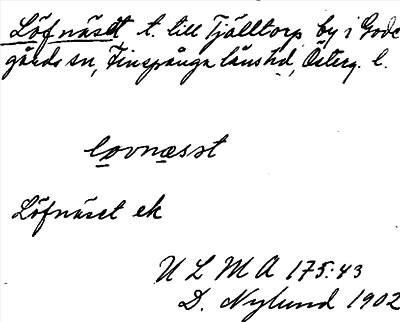 Löfnäset t. till Tjälltorp by i Gode
gårds sn, Finspånga länshd, Österg. l.
lovnæsst
Löfnäset ek
U L M A 175:43
D. Nylund 1902